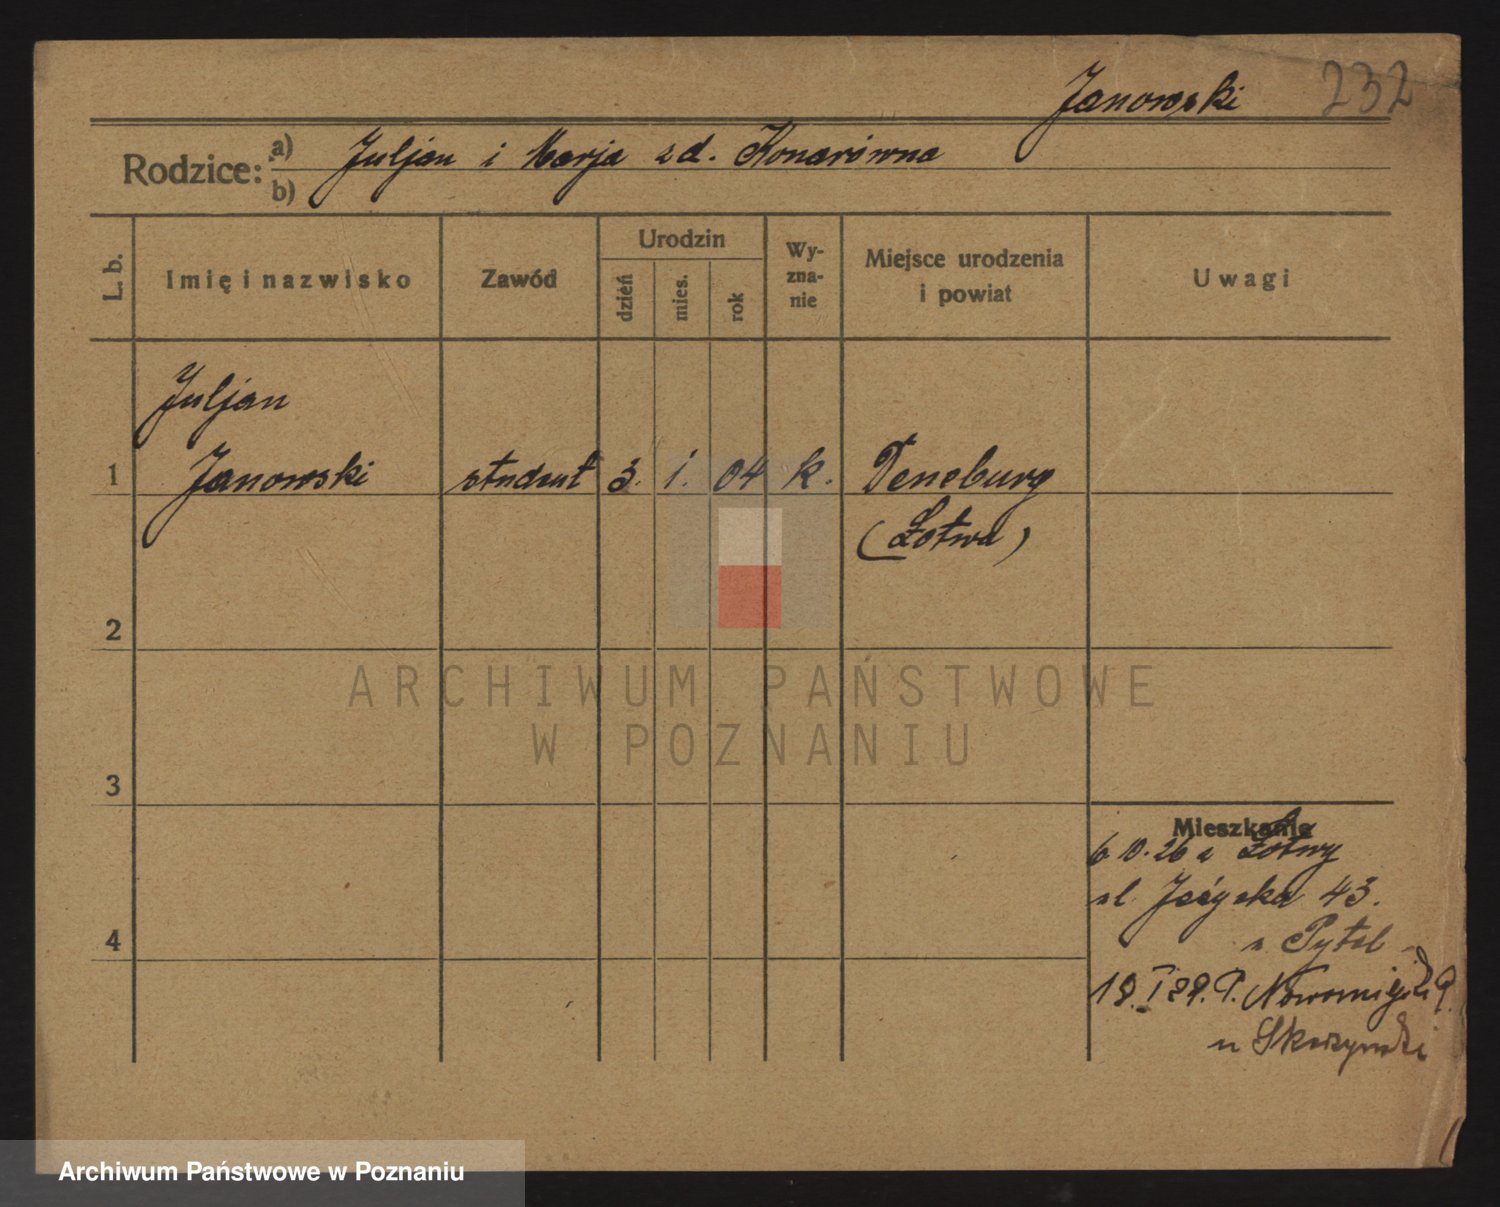 Janowski 232
Rodzice: a) Juljan i Marja zd. Konarówna
b)
L. b. Imię i nazwisko Zawód Urodzin dzień mies. rok Wy-zna-nie Miejsce urodzenia i powiat Uwagi
Juljan
1 Janowski student 3. 1. 04 k. Deneburg
(Łotwa)
2
ARCHIWUM PAŃSTWOWE
W POZNANIU
3
Mieszkanie
6 10. 26 z Łotwy
ul. Jeżycka 43.
u Pytel
4
19. I 29. P. Nowomiejski 9.
u Skoszyński
Archiwum Państwowe w Poznaniu